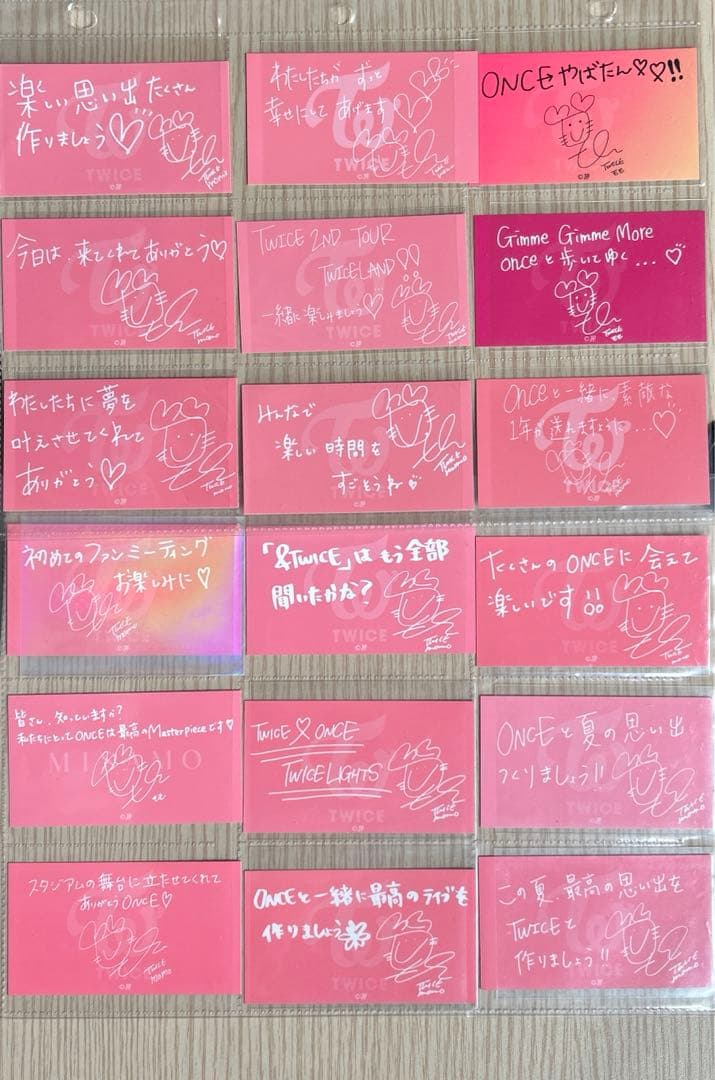 楽しい思い出たくさん
作りましょう♡
TWICE
momo
TWICE
わたしたちが ずっと
幸せにして あげます
TWICE
momo
TWICE
©JYP
ONCEやばたん♡♡!!
TWICE
もも
©JYP
今日は、来てくれてありがとう♡
TWICE
momo
TWICE
©JYP
TWICE 2ND TOUR
TWICELAND!!
一緒に楽しみましょう♡
TWICE
momo
TWICE
©JYP
Gimme Gimme More
onceと歩いてゆく...♡
TWICE
もも
©JYP
わたしたちに夢を
叶えさせてくれて
ありがとう♡
TWICE
momo
TWICE
©JYP
みんなで
楽しい時間を
すごそうね
TWICE
momo
TWICE
©JYP
onceと一緒に、素敵な
1年を送れますように...♡
TWICE
©JYP
初めてのファンミーティング
お楽しみに♡
TWICE
momo
©JYP
「&TWICE」はもう全部
聞いたかな?
TWICE
momo
TWICE
©JYP
たくさんのONCEに会えて
楽しいです!!
TWICE
momo
©JYP
皆さん、知っていますか?
私たちにとってONCEは最高のMasterpieceです♡
MISAMO
©JYP
TWICE♡ONCE
TWICELIGHTS
TWICE
momo
TWICE
©JYP
ONCEと夏の思い出
つくりましょう!!
TWICE
momo
TWICE
©JYP
スタジアムの舞台に立たせてくれて
ありがとうONCE♡
TWICE
MOMO
TWICE
©JYP
ONCEと一緒に最高のライブを
作りましょう
TWICE
momo
TWICE
©JYP
この夏、最高の思い出を
TWICEと
作りましょう!!
TWICE
momo
TWICE
©JYP